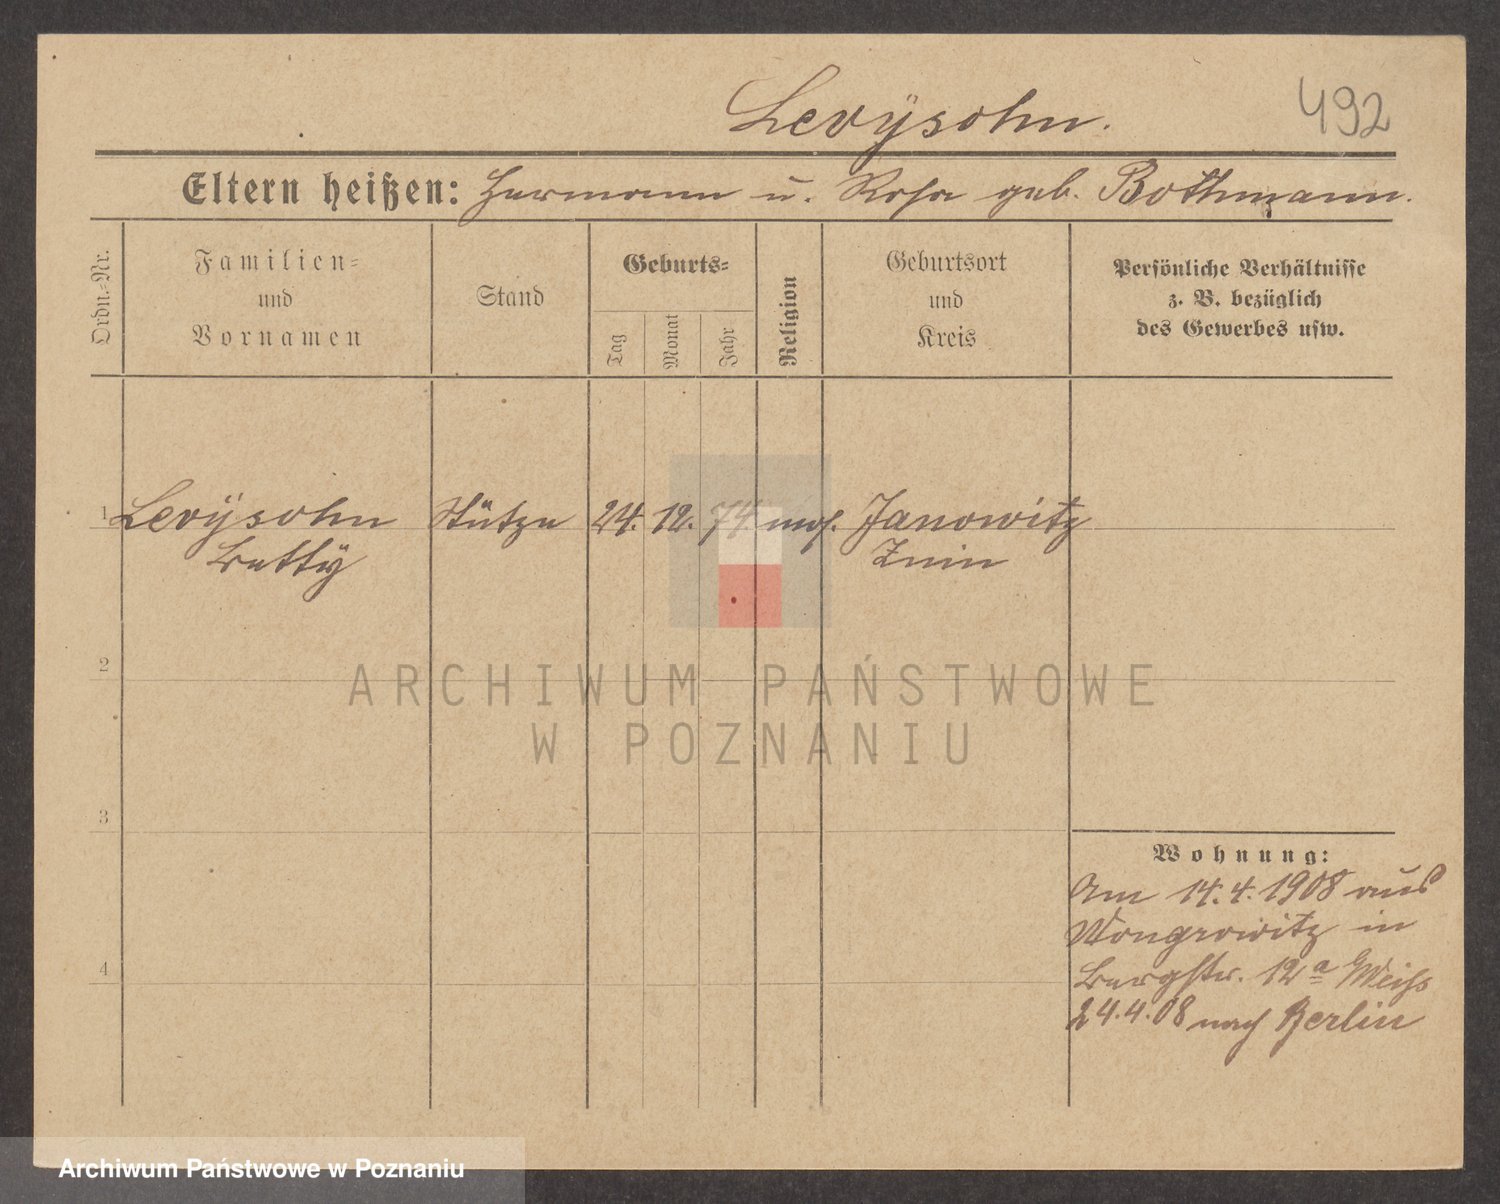 492
Levÿsohn.
Eltern heißen: Hermann u. Rosa geb. Bothmann.
Ordn.=Nr.
Familien=
und
Vornamen
Stand
Geburts=
Tag
Monat
Jahr
Religion
Geburtsort
und
Kreis
Persönliche Verhältnisse
z. B. bezüglich
des Gewerbes usw.
1 Levÿsohn Stütze 24. 12. 74. mos. Janowitz
Bettÿ Znin
2
3
4
Wohnung:
Am 14.4.1908 aus
Wongrowitz in
Bergstr. 12a Weiss
24.4.08 nach Berlin
ARCHIWUM PAŃSTWOWE
W POZNANIU
Archiwum Państwowe w Poznaniu